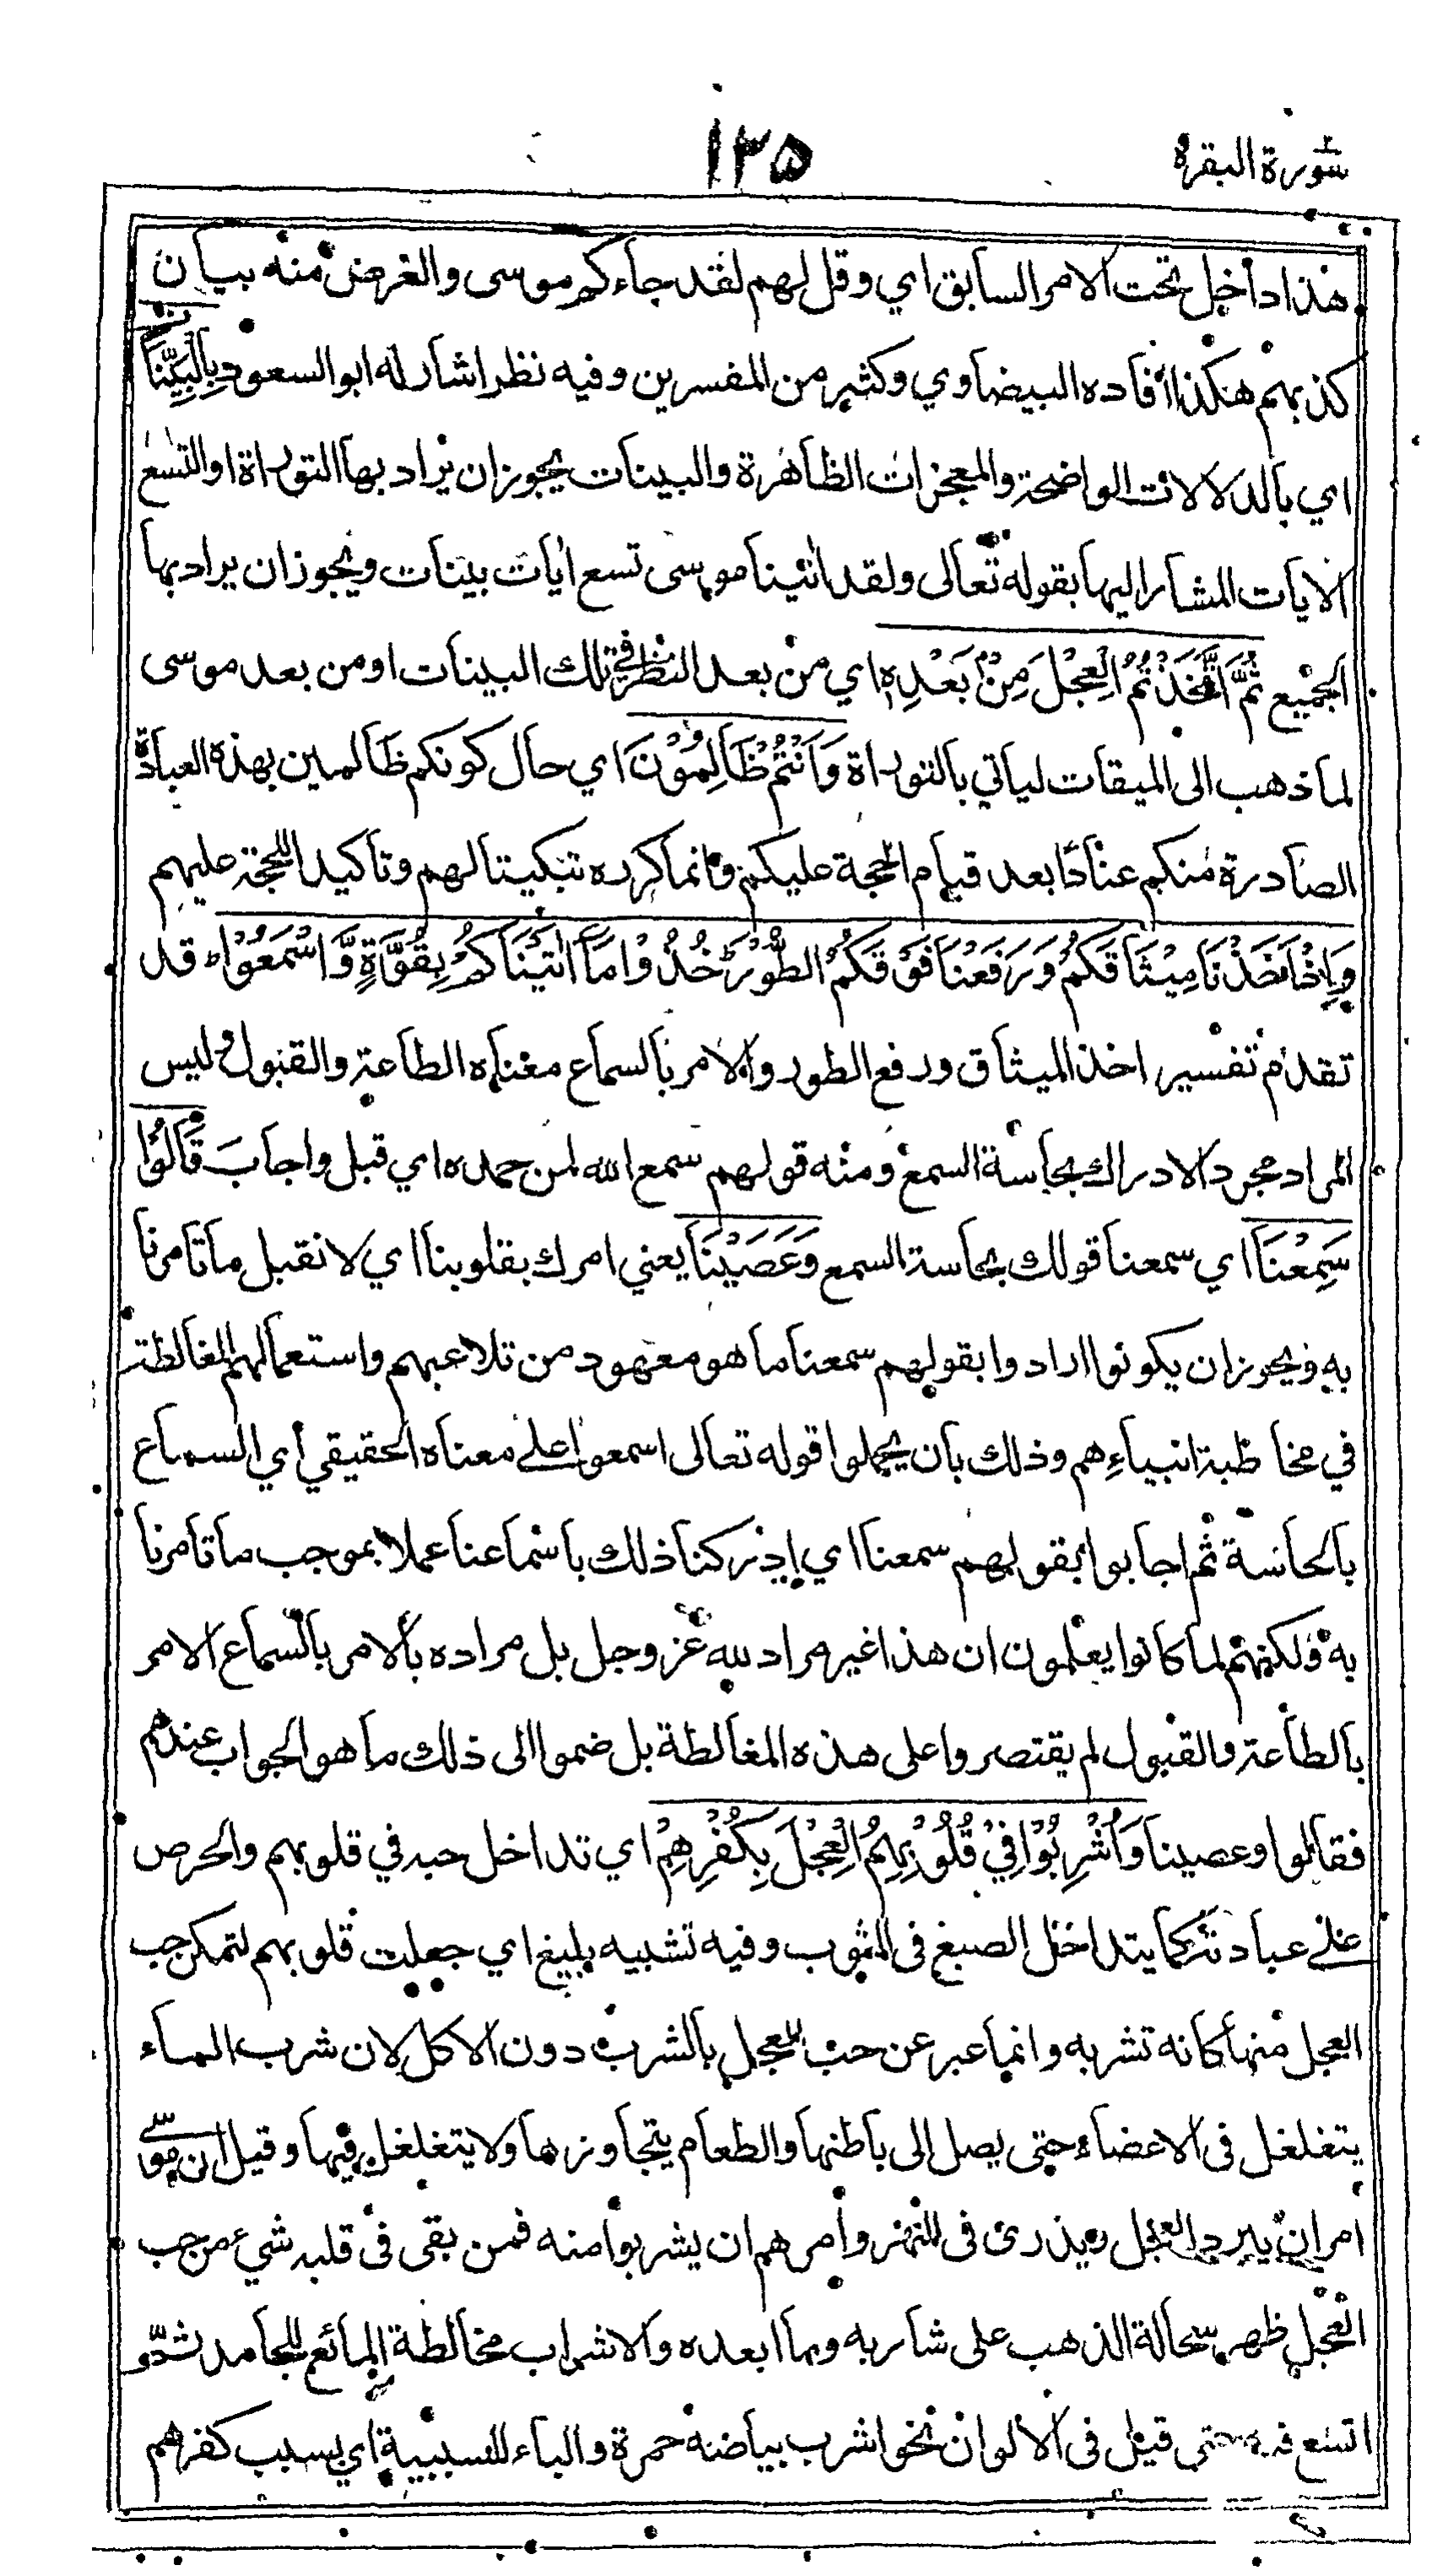 سورة البقره
١٣٥
هذا داخل تحت الامر السابق اي وقل لهم لقد جاءكم موسى والغرض منه بيان
كذبهم هكذا افاده البيضاوي وكثير من المفسرين وفيه نظر اشار له ابو السعود بِالْبَيِّنَاتِ
اي بالدلالات الواضحة والمعجزات الظاهرة والبينات يجوز ان يراد بها التوراة او التسع
الايات المشار اليها بقوله تعالى ولقد اتينا موسى تسع ايات بينات ويجوز ان يراد بها
الجميع ثُمَّ اتَّخَذْتُمُ الْعِجْلَ مِنْ بَعْدِهٖ اي من بعد النظر في تلك البينات او من بعد موسى
لما ذهب الى الميقات لياتي بالتوراة وَاَنْتُمْ ظَالِمُوْنَ اي حال كونكم ظالمين بهذه العبادة
الصادرة منكم عنادًا بعد قيام الحجة عليكم وانما كرره تبكيتا لهم وتاكيدا للحجة عليهم
وَاِذْ اَخَذْنَا مِيْثَاقَكُمْ وَرَفَعْنَا فَوْقَكُمُ الطُّوْرَ خُذُوْا مَا اٰتَيْنَاكُمْ بِقُوَّةٍ وَّاسْمَعُوْا ط قد
تقدم تفسير اخذ الميثاق ورفع الطور والامر بالسماع معناه الطاعة والقبول وليس
المراد مجرد الادراك بحاسة السمع ومنه قولهم سمع الله لمن حمده اي قبل واجاب قَالُوْا
سَمِعْنَا اي سمعنا قولك بحاسة السمع وَعَصَيْنَا يعني امرك بقلوبنا اي لا نقبل ما تامرنا
به ويجوز ان يكونوا ارادوا بقولهم سمعنا ما هو معهود من تلاعبهم واستعمالهم المغالطة
في مخاطبة انبياءهم وذلك بان يحملوا قوله تعالى اسمعوا على معناه الحقيقي أي السماع
بالحاسة ثم اجابوا بقولهم سمعنا اي ادركنا ذلك باسماعنا عملا بموجب ما تأمرنا
به ولكنهم لما كانوا يعلمون ان هذا غير مراد لله عز وجل بل مراده بالامر بالسماع الامر
بالطاعة والقبول لم يقتصروا على هذه المغالطة بل ضموا الى ذلك ما هو الجواب عندهم
فقالوا وعصينا وَاُشْرِبُوْا فِيْ قُلُوْبِهِمُ الْعِجْلَ بِكُفْرِهِمْ اي تداخل حبه في قلوبهم والحرص
على عبادته كما يتداخل الصبغ في الثوب وفيه تشبيه بليغ اي جعلت قلوبهم لتمكن حب
العجل منها كانه تشربه وانما عبر عن حب العجل بالشرب دون الاكل لان شرب الماء
يتغلغل فى الاعضاء حتى يصل الى باطنها والطعام يتجاوزها ولا يتغلغل فيها وقيل ان موسى
امر ان يبرد العجل ويذرى فى النهر وأمرهم ان يشربوا منه فمن بقى فى قلبه شيء من حب
العجل ظهر سحالة الذهب على شاربه وما ابعده والاشراب مخالطة المائع للجامد ثم
اتسع فيه حتى قيل فى الالوان نحو اشرب بياضه حمرة والباء للسببية اي بسبب كفرهم